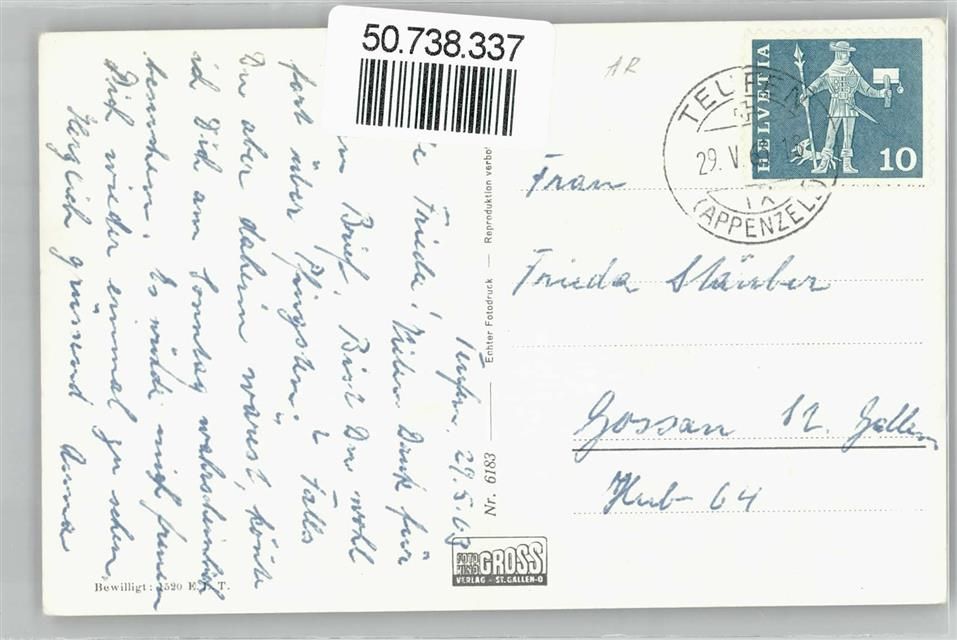 50.738.337
AR
HELVETIA
10
TEUFEN
29. V. 6
(APPENZELL)
Teufen, 29.5.63
e Frieda! Vielen Dank für
Brief. Bist Du wohl
fort über Pfingsten? Falls
Du aber daheim wärest, könte
ich Dich am Sonntag wahrscheinlich
besuchen. Es würde mich freuen
Dich wieder einmal zu sehen.
Herzlich grüssend Anna
Frau
Frieda Stäuber
Gossau St. Gallen
Hub 64
Nr. 6183 — Echter Fotodruck — Reproduktion verbot
FOTO GROSS
VERLAG - ST. GALLEN-O
Bewilligt: 1520 E. T.